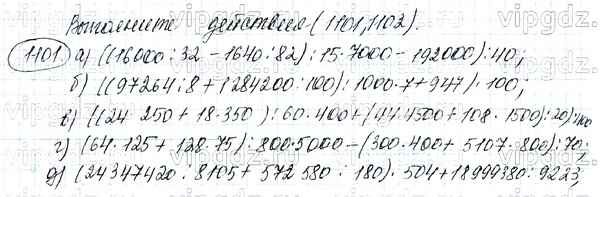 Выполните действия (1101, 1102).
1101 а) ((116000 : 32 - 1640 : 82) : 15 · 7000 - 192000) : 40;
б) ((97264 : 8 + 1284200 : 100) : 1000 · 7 + 947) · 100;
в) ((24 · 250 + 18 · 350) : 60 · 400 + (44 · 4500 + 108 · 1500) : 20) : 100
г) (64 · 125 + 128 · 75) : 800 · 5000 - (300 · 400 + 5107 · 800) : 70;
д) (24347420 : 8105 + 572 580 : 180) · 504 + 18999380 : 9223;
vipgdz.com